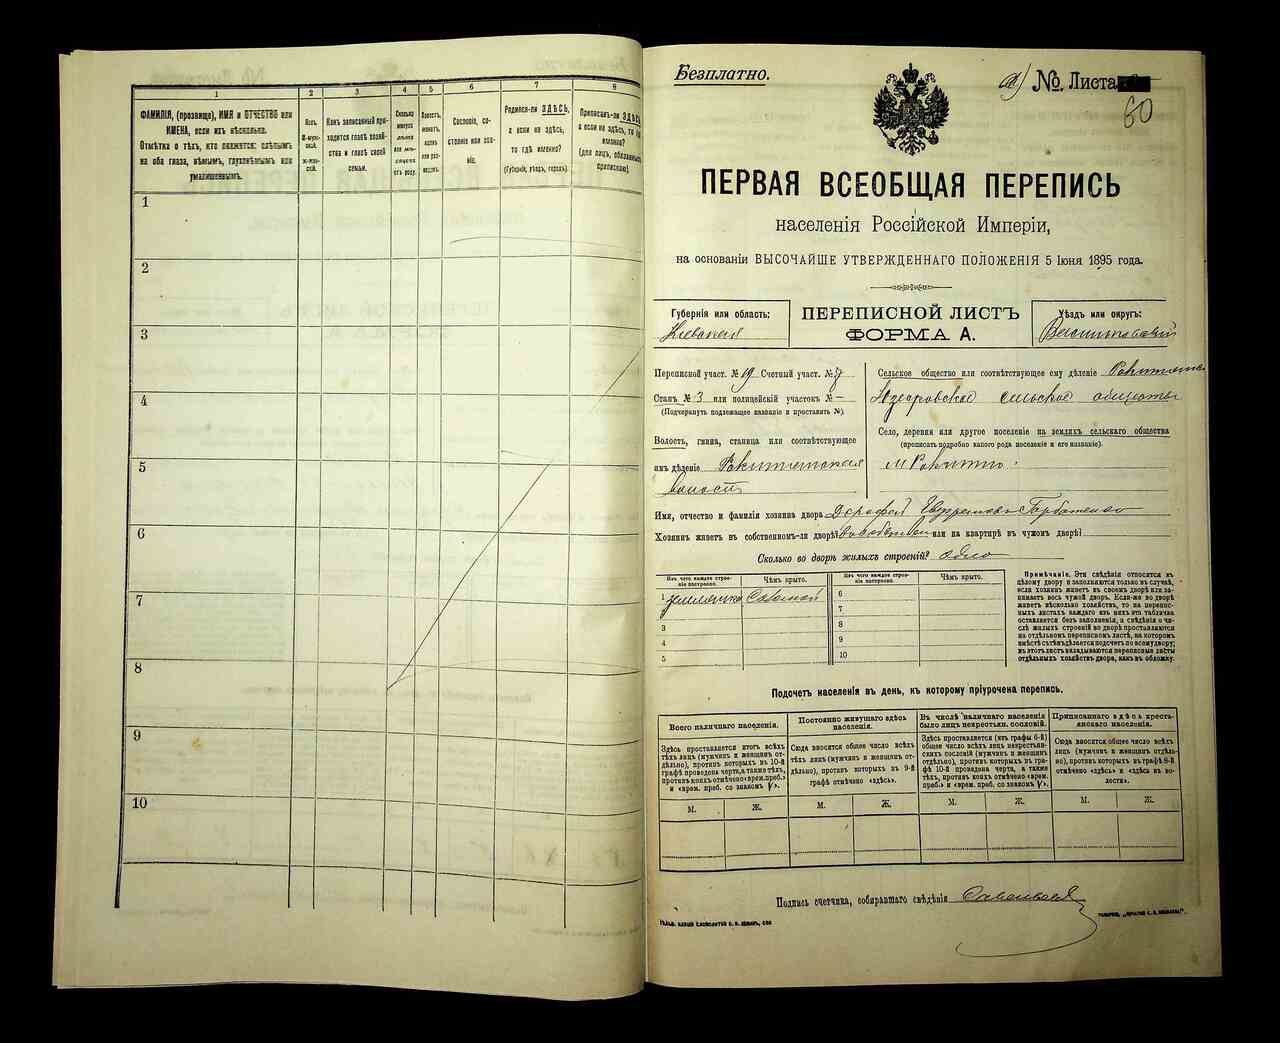 1 2 3 4 5 6 7 8
ФАМИЛІЯ, (прозвище), ИМЯ и ОТЧЕСТВО или
ИМЕНА, если ихъ нѣсколько.
Отмѣтка о тѣхъ, кто окажется: слѣпымъ
на оба глаза, нѣмымъ, глухонѣмымъ или
умалишеннымъ.
Полъ.
М-мужской.
Ж-женской.
Какъ записанный приходится главѣ хозяйства и главѣ своей семьи.
Сколько минуло лѣтъ или мѣсяцевъ отъ роду.
Сословіе, состояніе или званіе.
Родился-ли ЗДѢСЬ,
а если не здѣсь,
то гдѣ именно?
(Губернія, уѣздъ, городъ).
Приписанъ-ли ЗДѢСЬ,
а если не здѣсь, то гдѣ
именно?
(для лицъ, обязанныхъ
припискою)
1
2
3
4
5
6
7
8
9
10
Безплатно.
№ Листа
60
ПЕРВАЯ ВСЕОБЩАЯ ПЕРЕПИСЬ
населенія Россійской Имперіи,
на основаніи ВЫСОЧАЙШЕ УТВЕРЖДЕННАГО ПОЛОЖЕНІЯ 5 Іюня 1895 года.
Губернія или область:
Кіевская
ПЕРЕПИСНОЙ ЛИСТЪ
ФОРМА А.
Уѣздъ или округъ:
Васильковскій
Переписной участ. № 19 Счетный участ. № 7
Станъ № 3 или полицейскій участокъ № —
(Подчеркнуть подлежащее названіе и проставить №).
Волость, гмина, станица или соотвѣтствующее
имъ дѣленіе Рокитянская
волость
Сельское общество или соотвѣтствующее ему дѣленіе Рокитянс
сельское общество
Село, деревня или другое поселеніе на земляхъ сельскаго общества
(прописать подробно какого рода поселеніе и его названіе).
м Рокитно.
Имя, отчество и фамилія хозяина двора Горбатенко
Хозяинъ живетъ въ собственномъ-ли дворѣ? или на квартирѣ въ чужомъ дворѣ?
Сколько во дворѣ жилыхъ строеній? одно
Изъ чего каждое строеніе построено. Чѣмъ крыто. Изъ чего каждое строеніе построено. Чѣмъ крыто.
1 землянка Соломой 6
7
3 8
4 9
5 10
Примѣчаніе. Эти свѣдѣнія относятся къ
цѣлому двору и заполняются только въ случаѣ,
если хозяинъ живетъ въ своемъ дворѣ или занимаетъ
весь чужой дворъ. Если-же во дворѣ
живетъ нѣсколько хозяйствъ, то на переписныхъ
листахъ каждаго изъ нихъ эта табличка
оставляется безъ заполненія, а свѣдѣнія о числѣ
жилыхъ строеній во дворѣ проставляются
на отдѣльномъ переписномъ листѣ, на которомъ
вмѣстѣ съ тѣмъ дѣлается подсчетъ по всему двору;
въ этотъ листъ вкладываются переписные листы
отдѣльныхъ хозяйствъ двора, какъ въ обложку.
Подсчетъ населенія въ день, къ которому пріурочена перепись.
Всего наличнаго населенія.
Постоянно живущаго здѣсь населенія.
Въ числѣ наличнаго населенія было лицъ некрестьян. сословій.
Приписаннаго здѣсь крестьянскаго населенія.
Здѣсь проставляется итогъ всѣхъ
тѣхъ лицъ (мужчинъ и женщинъ отдѣльно),
противъ которыхъ въ 10-й
графѣ проведена черта, а также тѣхъ,
противъ коихъ отмѣчено «врем. преб.»
и «врем. преб. со знакомъ V».
Сюда вносится общее число всѣхъ
тѣхъ лицъ (мужчинъ и женщинъ отдѣльно),
противъ которыхъ въ 9-й
графѣ отмѣчено «здѣсь».
Здѣсь проставляется (изъ графы 6-й)
общее число всѣхъ лицъ некрестьянскихъ
сословій (мужчинъ и женщинъ
отдѣльно), противъ которыхъ въ графѣ
10-й проведена черта, а также
тѣхъ, противъ коихъ отмѣчено «врем.
преб.» и «врем. преб. со знакомъ V».
Сюда вносится общее число всѣхъ
лицъ (мужчинъ и женщинъ отдѣльно),
противъ которыхъ въ графѣ 8-й
отмѣчено «здѣсь» и «здѣсь въ волости».
М. Ж. М. Ж. М. Ж. М. Ж.
Подпись счетчика, собиравшаго свѣдѣнія